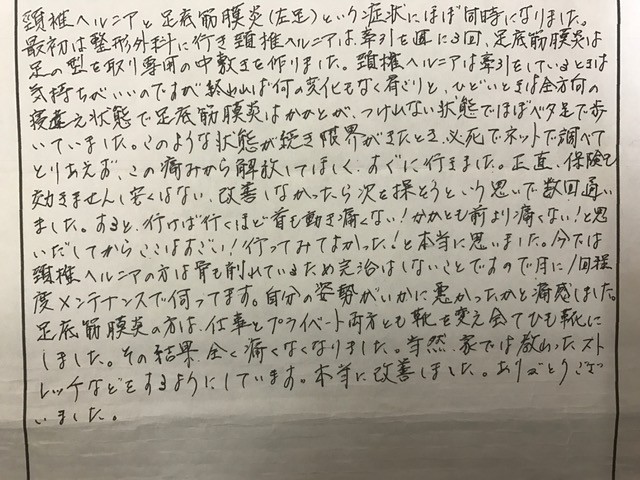 頚椎ヘルニアと足底筋膜炎(左足)という症状にほぼ同時になりました。
最初は整形外科に行き頚椎ヘルニアは、牽引を週に3回、足底筋膜炎は
足の型を取り専用の中敷きを作りました。頚椎ヘルニアは牽引をしているときは
気持ちがいいのですが終われば何の変化もなく肩こりと、ひどいときは全方向の
寝違え状態で足底筋膜炎はかかとが、つけれない状態でほぼベタ足で歩
いていました。このような状態が続き限界がきたとき、必死でネットで調べて
とりあえず、この痛みから解放してほしく、すぐに行きました。正直、保険も
効きませんし安くはない、改善しなかったら次を探そうという思いで数回通い
ました。すると、行けば行くほど首も動き痛くない!かかとも前より痛くない!と思
いだしてからここはすごい!行ってみてよかった!と本当に思いました。今では
頚椎ヘルニアの方は骨も削れているため完治はしないことですので月に1回程
度メンテナンスで伺ってます。自分の姿勢がいかに悪かったかと痛感しました。
足底筋膜炎の方は、仕事とプライベート両方とも靴を変え全てひも靴に
しました。その結果、全く痛くなくなりました。当然、家では教わったスト
レッチなどをするようにしています。本当に改善しました。ありがとうござ
いました。